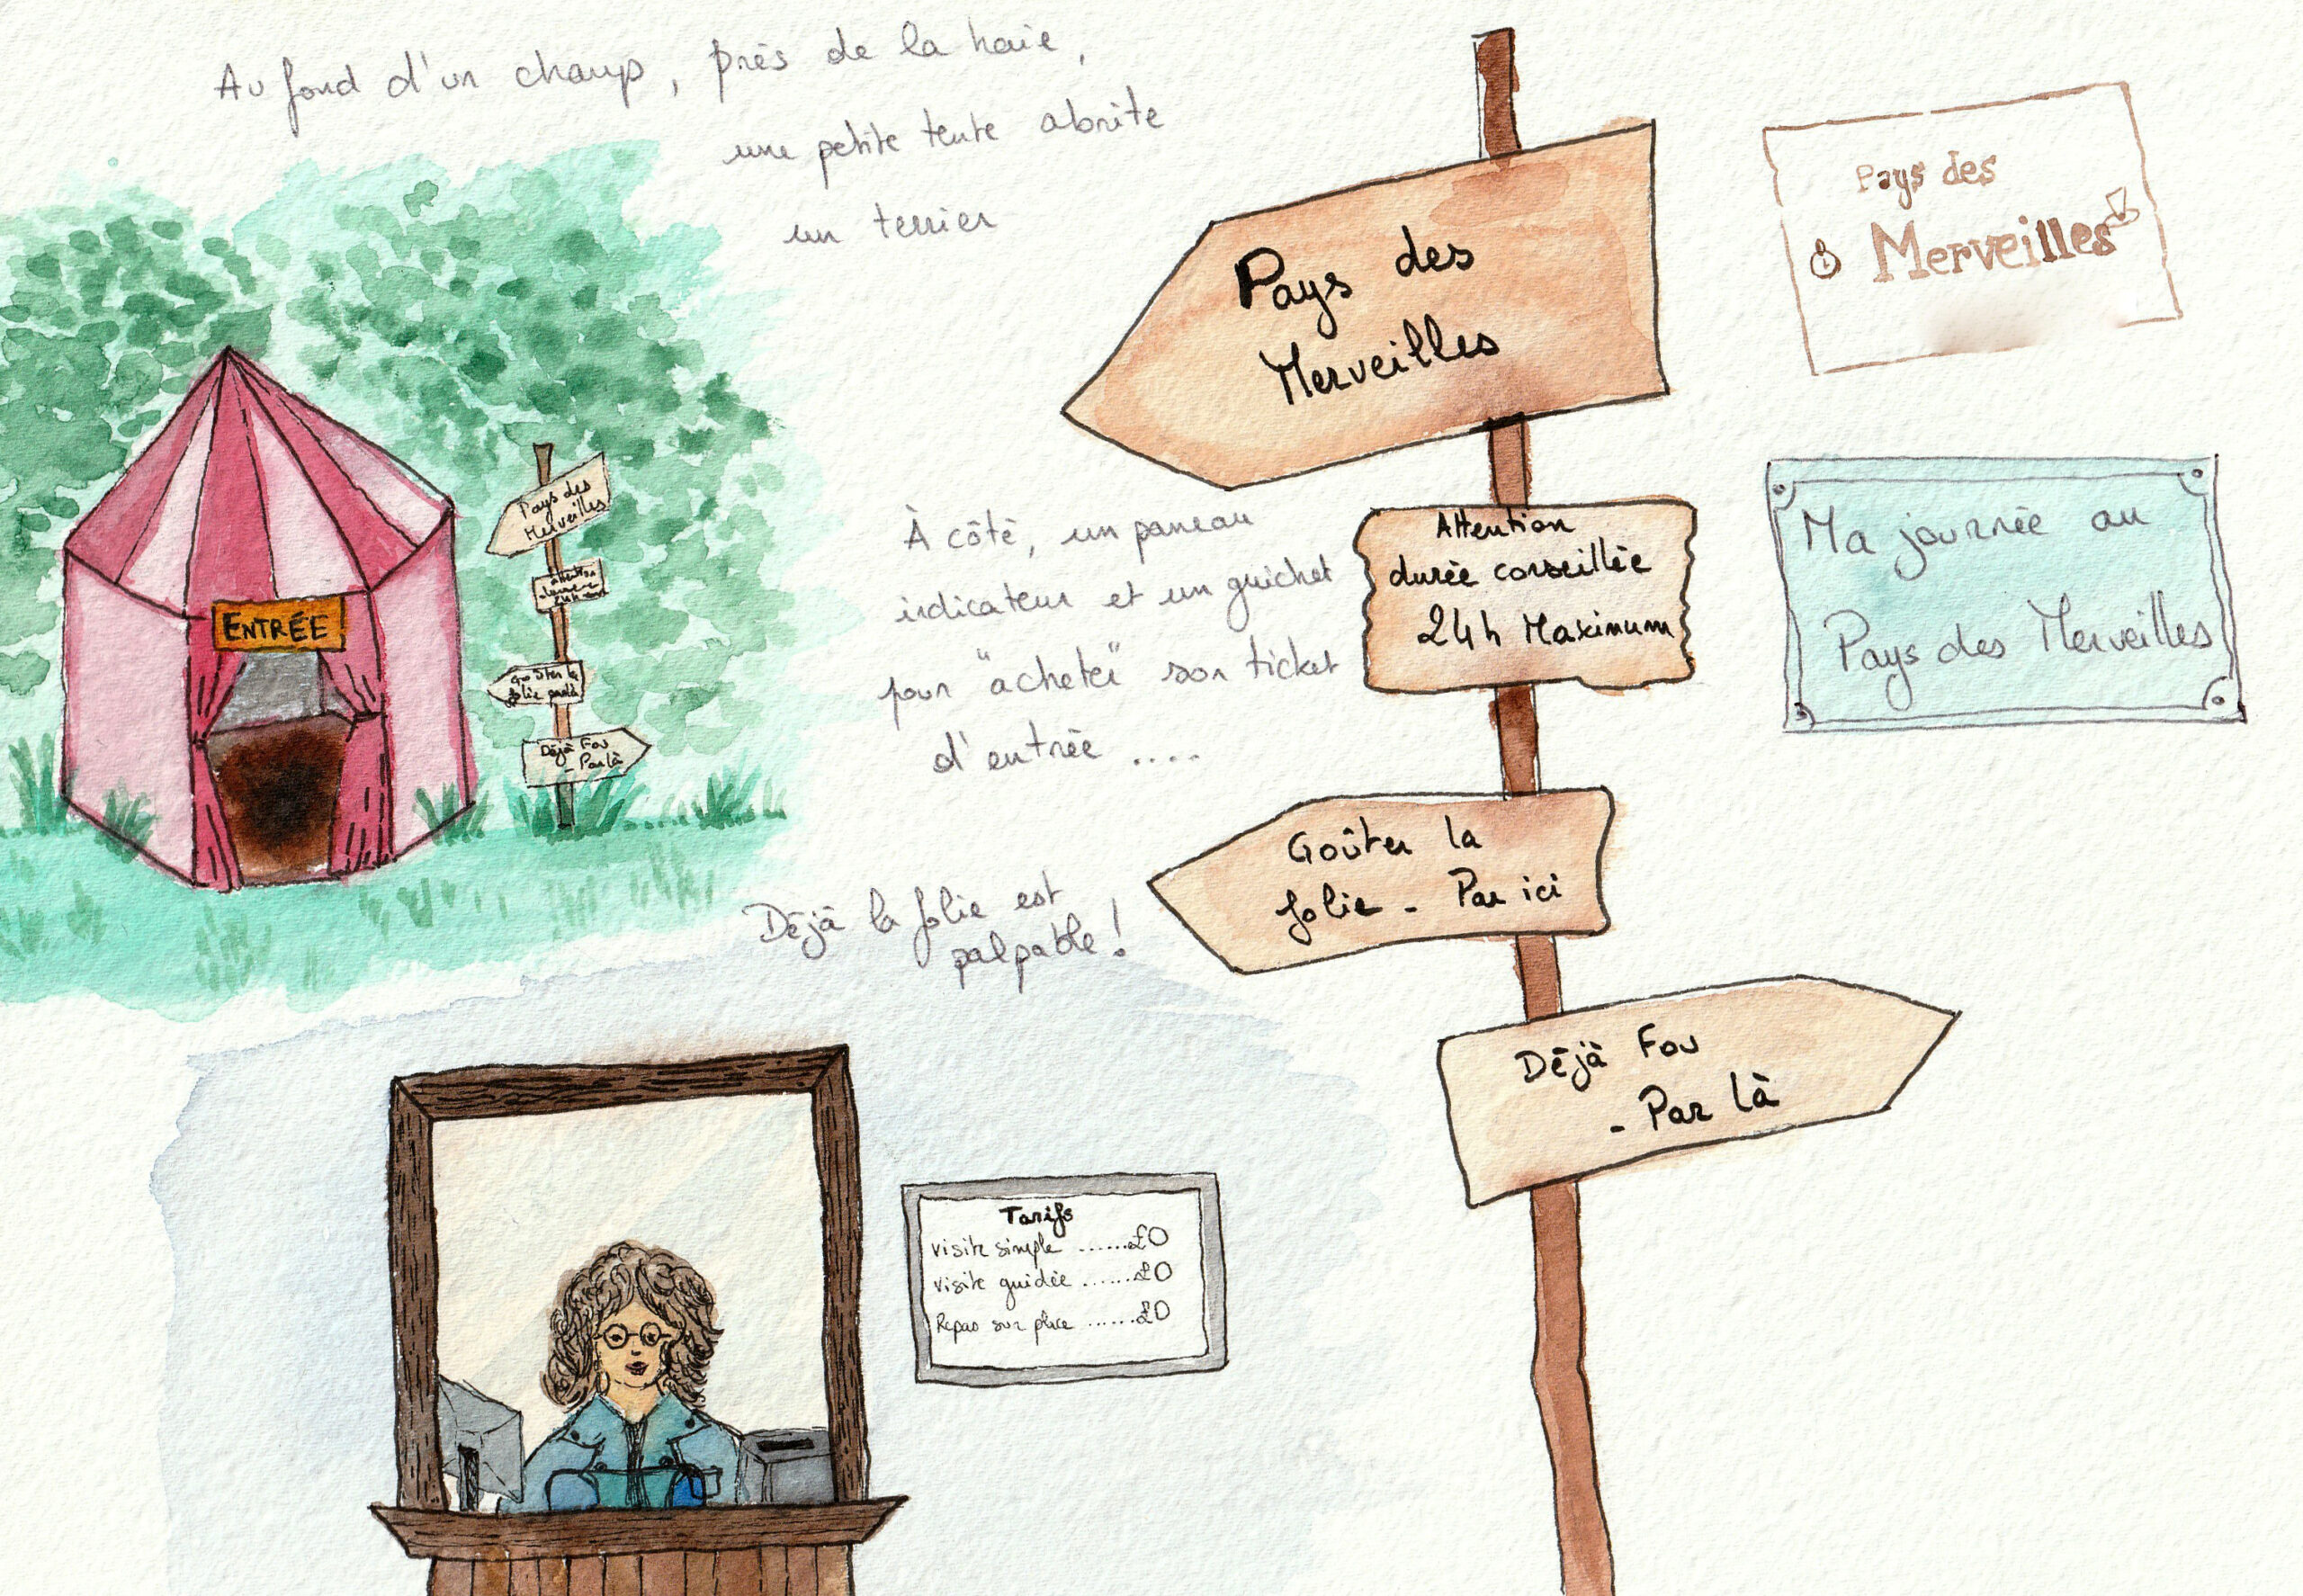 Au fond d'un champ, près de la haie,
une petite tente abrite
un terrier
ENTRÉE
Pays des
Merveilles
Attention
24h
Goûter la
folie par là
Déjà Fou
- Par là
À côté, un panneau
indicateur et un guichet
pour "acheter" son ticket
d'entrée ....
Déjà la folie est
palpable !
Pays des
Merveilles
Attention
durée conseillée
24h Maximum
Goûter la
folie - Par ici
Déjà Fou
- Par là
Pays des
Merveilles
Ma journée au
Pays des Merveilles
Tarifs
visite simple ......£0
visite guidée ......£0
Repas sur place ......£0